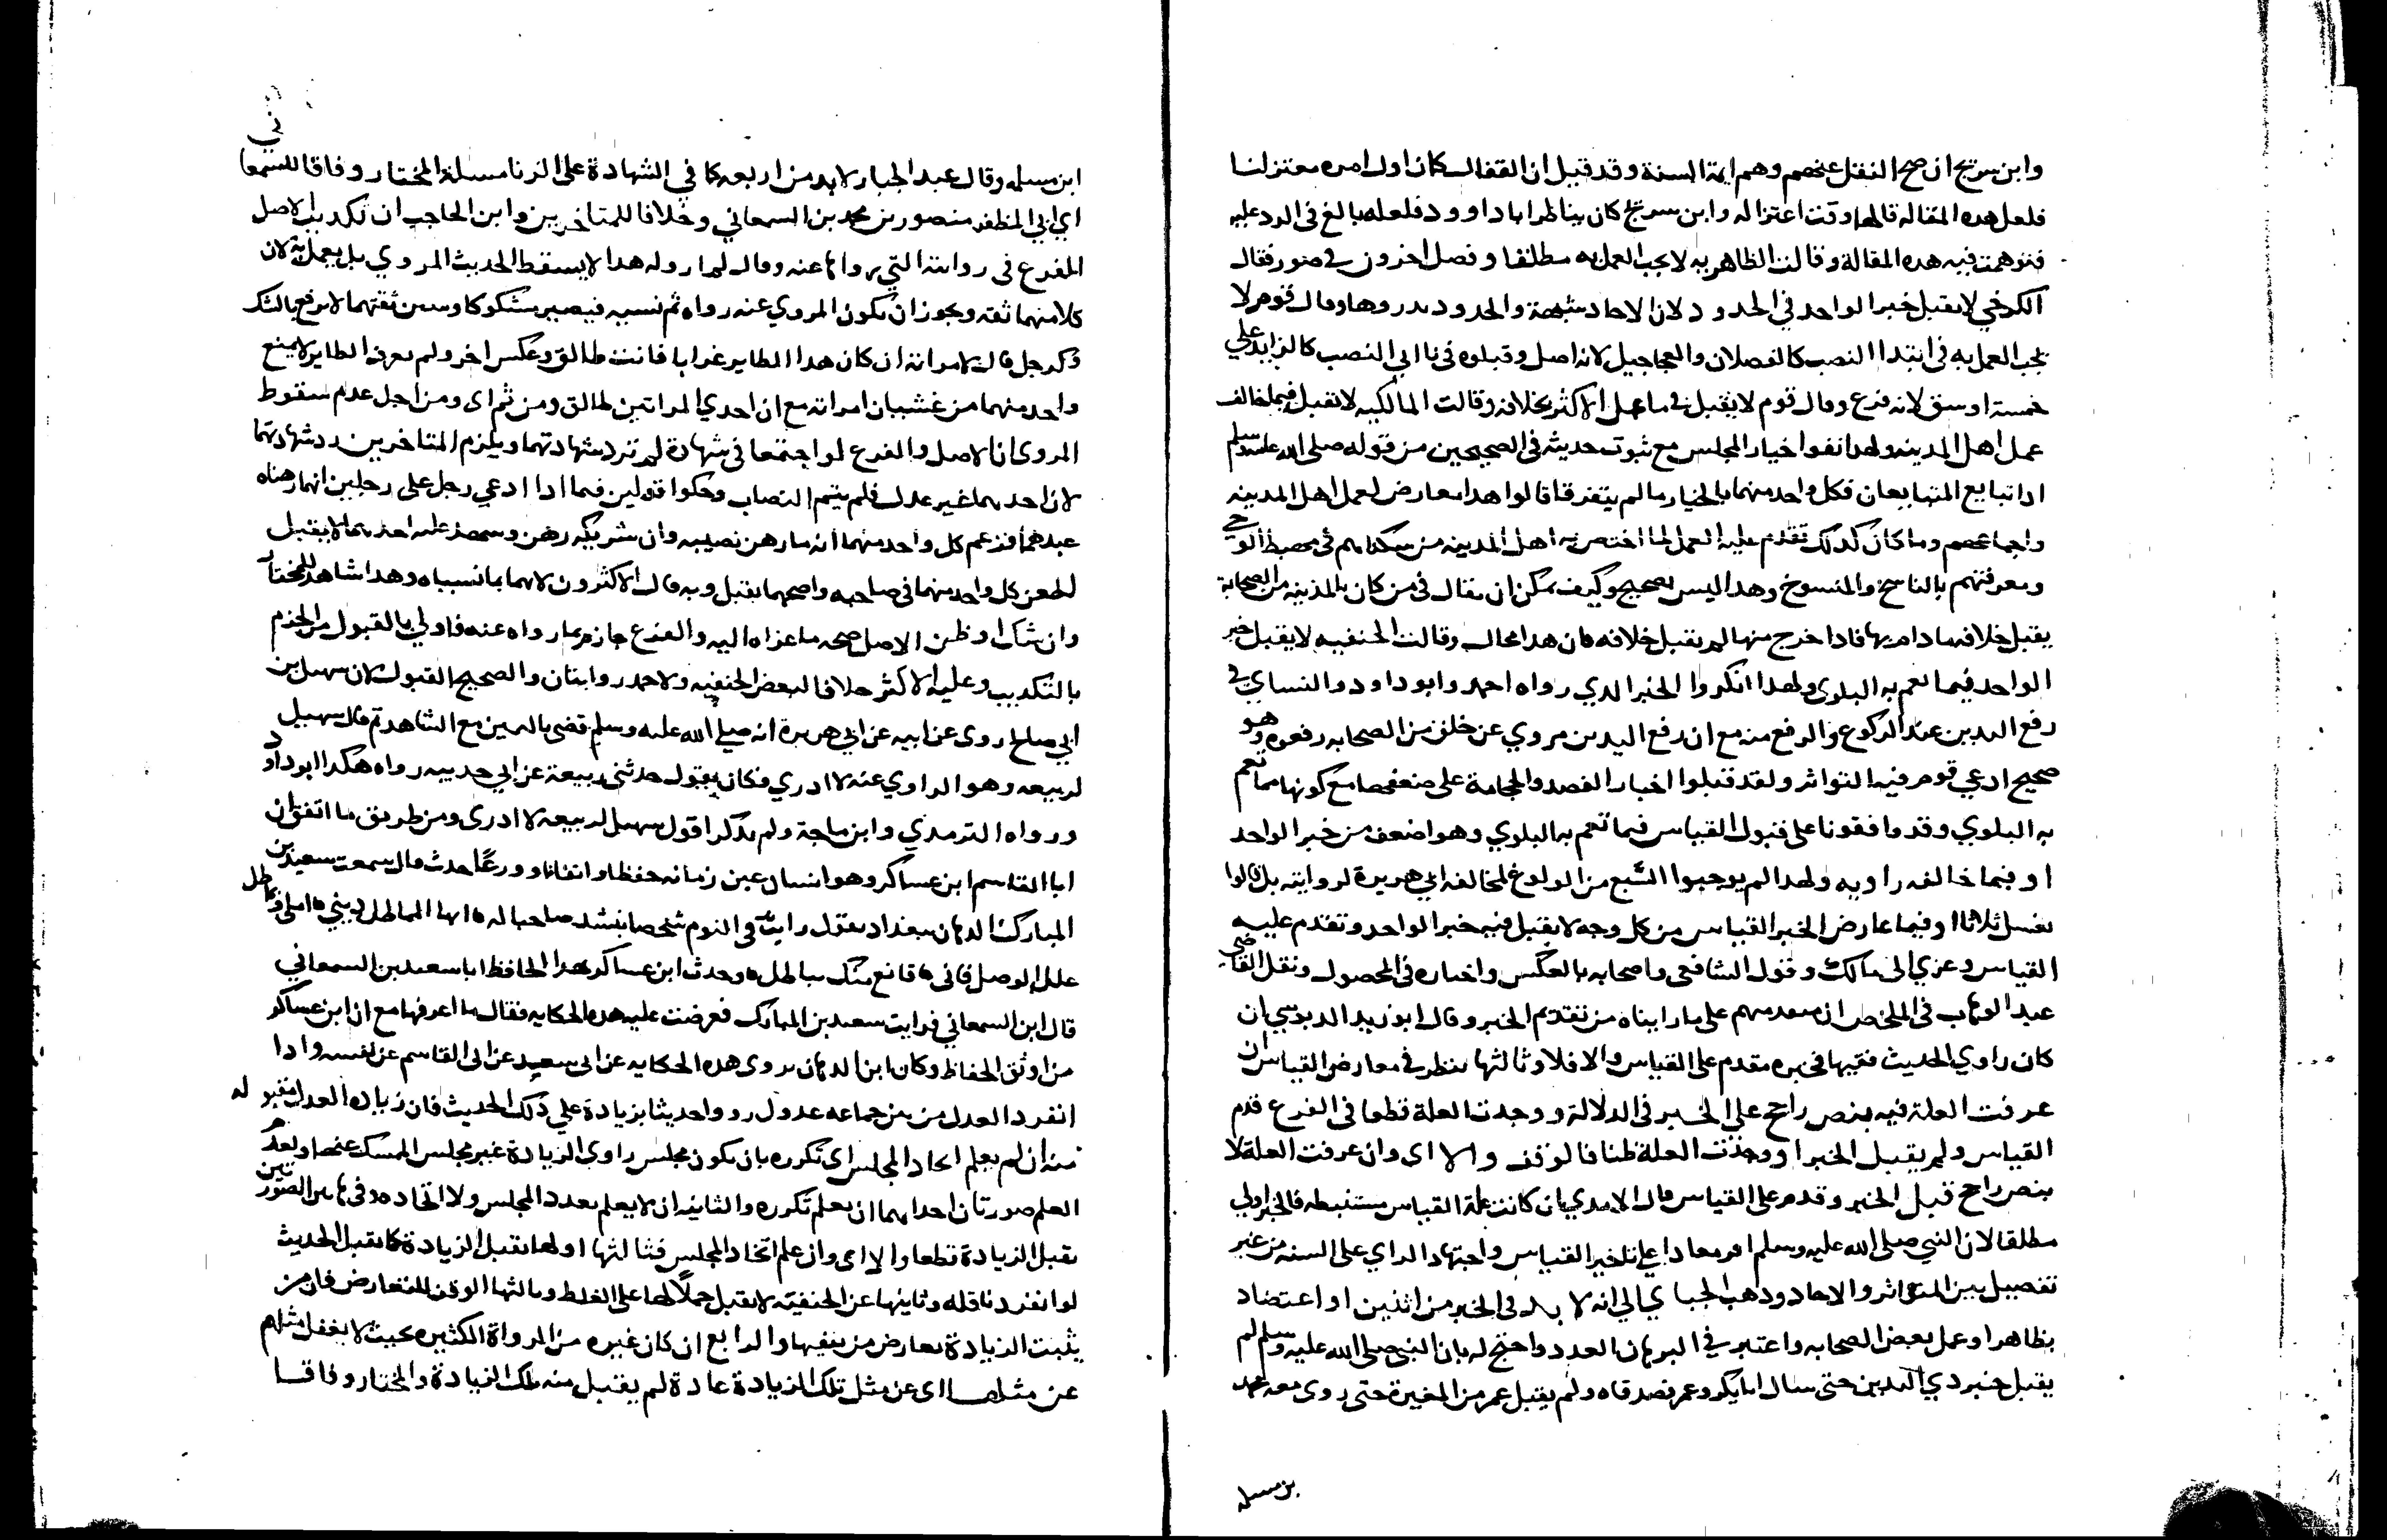 وابن سريج ان صح النقل عنهم وهم ايمة السنة وقد قيل ان القفال كان اول امره معتزليا
فلعل هذه المقالة قالها وقت اعتزاله وابن سريج كان يناظر ابا داوود فلعله بالغ في الرد عليه
فتوهمت فيه هذه المقالة وقالت الظاهرية لا يجب العمل به مطلقا وفصل اخرون في صور فقال
الكرخي لا يقبل خبر الواحد في الحدود لان الاحاد شبهة والحدود تدروها وقال قوم لا
يجب العمل به في ابتدا النصب كالفصلان والعجاجيل لانه اصل وقبلوه في ثاني النصب كالزايد على
خمسة اوسق لانه فرع وقال قوم لا يقبل في ما عمل الاكثر بخلافه وقالت المالكيه لا تقبل فيما خالف
عمل اهل المدينه ولهذا نفوا خيار المجلس مع ثبوت حديثه في الصحيحين من قوله صلى الله عليه وسلم
اذا تبايع المتبايعان فكل واحد منهما بالخيار ما لم يتفرقا قالوا هذا معارض لعمل اهل المدينه
واجماعهم وما كان كذلك تقدم عليه العمل لما اختص به اهل المدينه من سكناهم في مهبط الوحي
ومعرفتهم بالناسخ والمنسوخ وهذا ليس بصحيح وكيف يمكن ان يقال في من كان بالمدينه من الصحابة
يقبل خلافه ما دام بها فاذا خرج منها لم يقبل خلافه فان هذا محال وقالت الحنفيه لا يقبل خبر
الواحد فيما تعم به البلوى ولهذا انكروا الخبر الذي رواه احمد وابو داود والنساي في
رفع اليدين عند الركوع والرفع منه مع ان رفع اليدين مروي عن خلق من الصحابه رفعوه وهو
صحيح ادعي قوم فيه التواتر ولقد قبلوا اخبار الفصد والحجامة على ضعفها مع كونها مما تعم
به البلوي وقد وافقونا على قبول القياس فيما تعم به البلوي وهو اضعف من خبر الواحد
او فيما خالفه راويه ولهذا لم يوجبوا السبع من الولوغ لمخالفه ابي هريرة لروايته بل قالوا
يغسل ثلاثا او فيما عارض الخبر القياس من كل وجه لا يقبل فيه خبر الواحد وتقدم عليه
القياس وعزي الى مالك وقول الشافعي واصحابه بالعكس واختاره في المحصول ونقل القاضي
عبد الوهاب في الملخص ان متقدميهم على ما رايناه من تقديم الخبر وقال ابو زيد الدبوسي ان
كان راوي الحديث فقيها فخبره مقدم على القياس والا فلا وثالثها ينظر في معارض القياس ان
عرفت العلة فيه بنص راجح على الخبر في الدلالة ووجدت العلة قطعا في الفرع قدم
القياس ولم يقبل الخبر او وجدت العلة ظنا فالوقف والا اى وان عرفت العلة لا
بنص راجح قبل الخبر وقدم على القياس قال الامدي بان كانت علة القياس مستنبطه فالخبر اولي
مطلقا لان النبي صلى الله عليه وسلم اقر معاذا على تاخير القياس واجتهاد الراي على السنه من غير
تفصيل بين المتواتر والاحاد وذهب الجباي الي انه لا بد في الخبر من اثنين او اعتضاد
بظاهر او عمل بعض الصحابه واعتبر في البرهان العدد واحتج له بان النبي صلى الله عليه وسلم لم
يقبل خبر ذي اليدين حتى سال ابا بكر وعمر فصدقاه ولم يقبل عمر من المغيرة حتى روى معه محمد
بن مسلمه
ابن مسلمه وقال عبد الجبار لا بد من اربعه كما في الشهادة على الزنا مسلة المختار وفاقا للسمعاني
اي ابي المظفر منصور بن محمد بن السمعاني وخلافا للمتاخرين وابن الحاجب ان تكذيب الاصل
الفرع في روايته التي رواها عنه وقال لم اروله هذا لا يسقط الحديث المروي بل يعمل به لان
كلا منهما ثقه ويجوز ان يكون المروي عنه رواه ثم نسيه فيصير مشكوكا ويبين ثقتهما لا يرفع بالشك
ذكر رجل قال لامراته ان كان هذا الطاير غرابا فانت طالق وعكس اخر ولم يعرف الطاير لا يمنع
واحد منهما من غشيان امراته مع ان احدي المراتين طالق ومن ثم اى ومن اجل عدم سقوط
المروى ان الاصل والفرع لو اجتمعا في شهادة لم ترد شهادتهما ويلزم المتاخرين رد شهادتهما
لان احدهما غير عدل فلم يتم النصاب وحكوا قولين فيما اذا ادعي رجل على رجلين انهما رهناه
عبدهما فزعم كل واحد منهما انه ما رهن نصيبه وان شريكه رهن وشهد عليه احدهما لا يقبل
لطعن كل واحد منهما في صاحبه واصحهما يقبل وبه قال الاكثرون لانهما بما نسياه وهذا شاهد للمختار
وان شك او ظن الاصل صحه ما عزاه اليه والفرع جازم بما رواه عنه فاولي بالقبول من الجزم
بالتكذيب وعليه الاكثر خلافا لبعض الحنفيه ولاحمد روايتان والصحيح القبول لان سهيل بن
ابي صالح روى عن ابيه عن ابي هريرة انه صلي الله عليه وسلم قضى باليمين مع الشاهد ثم قال سهيل
لربيعه وهو الراوي عنه لا ادري فكان يقول حدثني ربيعة عني ابي حدثته رواه هكذا ابو داود
ورواه الترمذي وابن ماجة ولم يذكرا قول سهيل لربيعه لا ادرى ومن طريق ما اتفق ان
ابا القاسم ابن عساكر وهو انسان عين زمانه حفظا واتقانا وورعا حدث قال سمعت سعيد بن
المبارك الدهان ببغداد يقول رايت في النوم شخصا ينشد صاحبا له ه ايها الماطل ديني ه املي وتماطل
علل الوصل فاني ه قانع منك بباطل ه وحدث ابن عساكر بهذا الحافظ ابا سعيد بن السمعاني
قال ابن السمعاني فرايت سعيد بن المبارك فعرضت عليه هذه الحكايه فقال ما اعرفها مع ان ابن عساكر
من اوثق الحفاظ وكان ابن الدهان يروى هذه الحكايه عن ابى سعيد عن ابى القاسم عن نفسه واذا
انفرد العدل من بين جماعه عدول رووا حديثا بزيادة علي ذلك الحديث فان زياده العدل مقبوله
منه ان لم يعلم اتحاد المجلس اى تكرره بان يكون مجلس راوي الزيادة غير مجلس الممسك عنها ولعدم
العلم صورتان احداهما ان يعلم تكرره والثانيه ان لا يعلم تعدد المجلس ولا اتحاده وفي هاتين الصورتين
تقبل الزيادة قطعا والا اى وان علم اتحاد المجلس فثالثها اولها تقبل الزيادة كما تقبل الحديث
لو انفرد ناقله وثانيها عن الحنفيه لا تقبل حملا لها على الغلط وثالثها الوقف للتعارض فان من
يثبت الزيادة يعارض من ينفيها والرابع ان كان غيره من الرواة الكثيره بحيث لا يغفل مثلهم
عن مثلها اى عن مثل تلك الزيادة عادة لم يقبل منه تلك الزيادة والمختار وفاقا